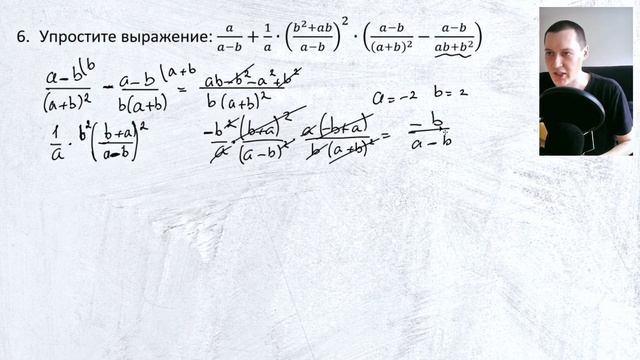 6. Упростите выражение: a/(a−b) + 1/a · ((b²+ab)/(a−b))² · ((a−b)/(a+b)² − (a−b)/(ab+b²))
(a−b(b)/(a+b)² − (a−b(a+b)/(b(a+b)) = (ab−b²−a²+b²)/(b(a+b)²) a=−2 b=2
1/a · b²((b+a)/(a−b))² −b²/a · (b+a)²/(a−b)² a(−b+a)/(b(a+b)²) = −b/(a−b)